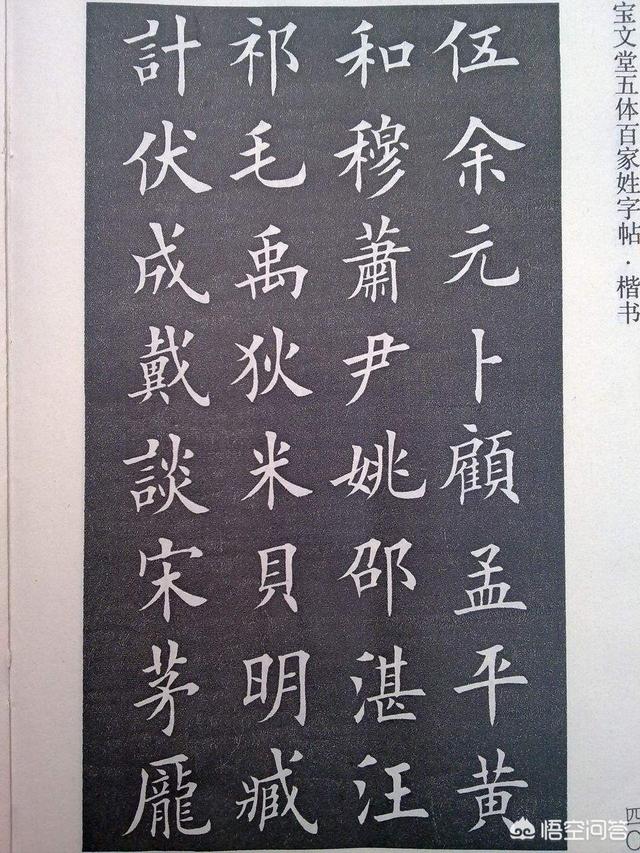 宝文堂五体百家姓字帖·楷书
伍余元卜顧孟平黄
和穆蕭尹姚邵湛汪
祁毛禹狄米貝明臧
計伏成戴談宋茅龐
四〇
悟空问答